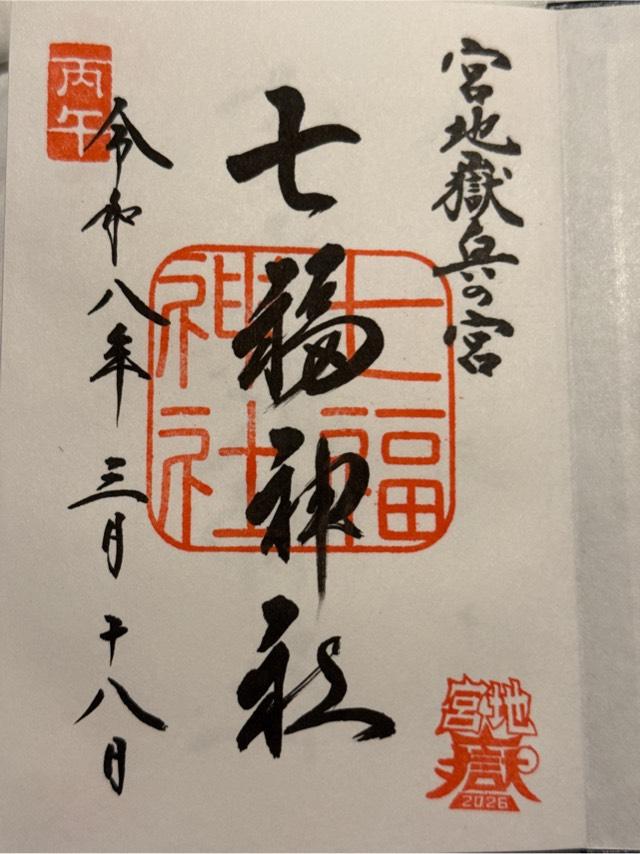 宮地嶽奥の宮
七福神社
七福
神社
丙午
令和八年三月十八日
宮地
嶽
2026